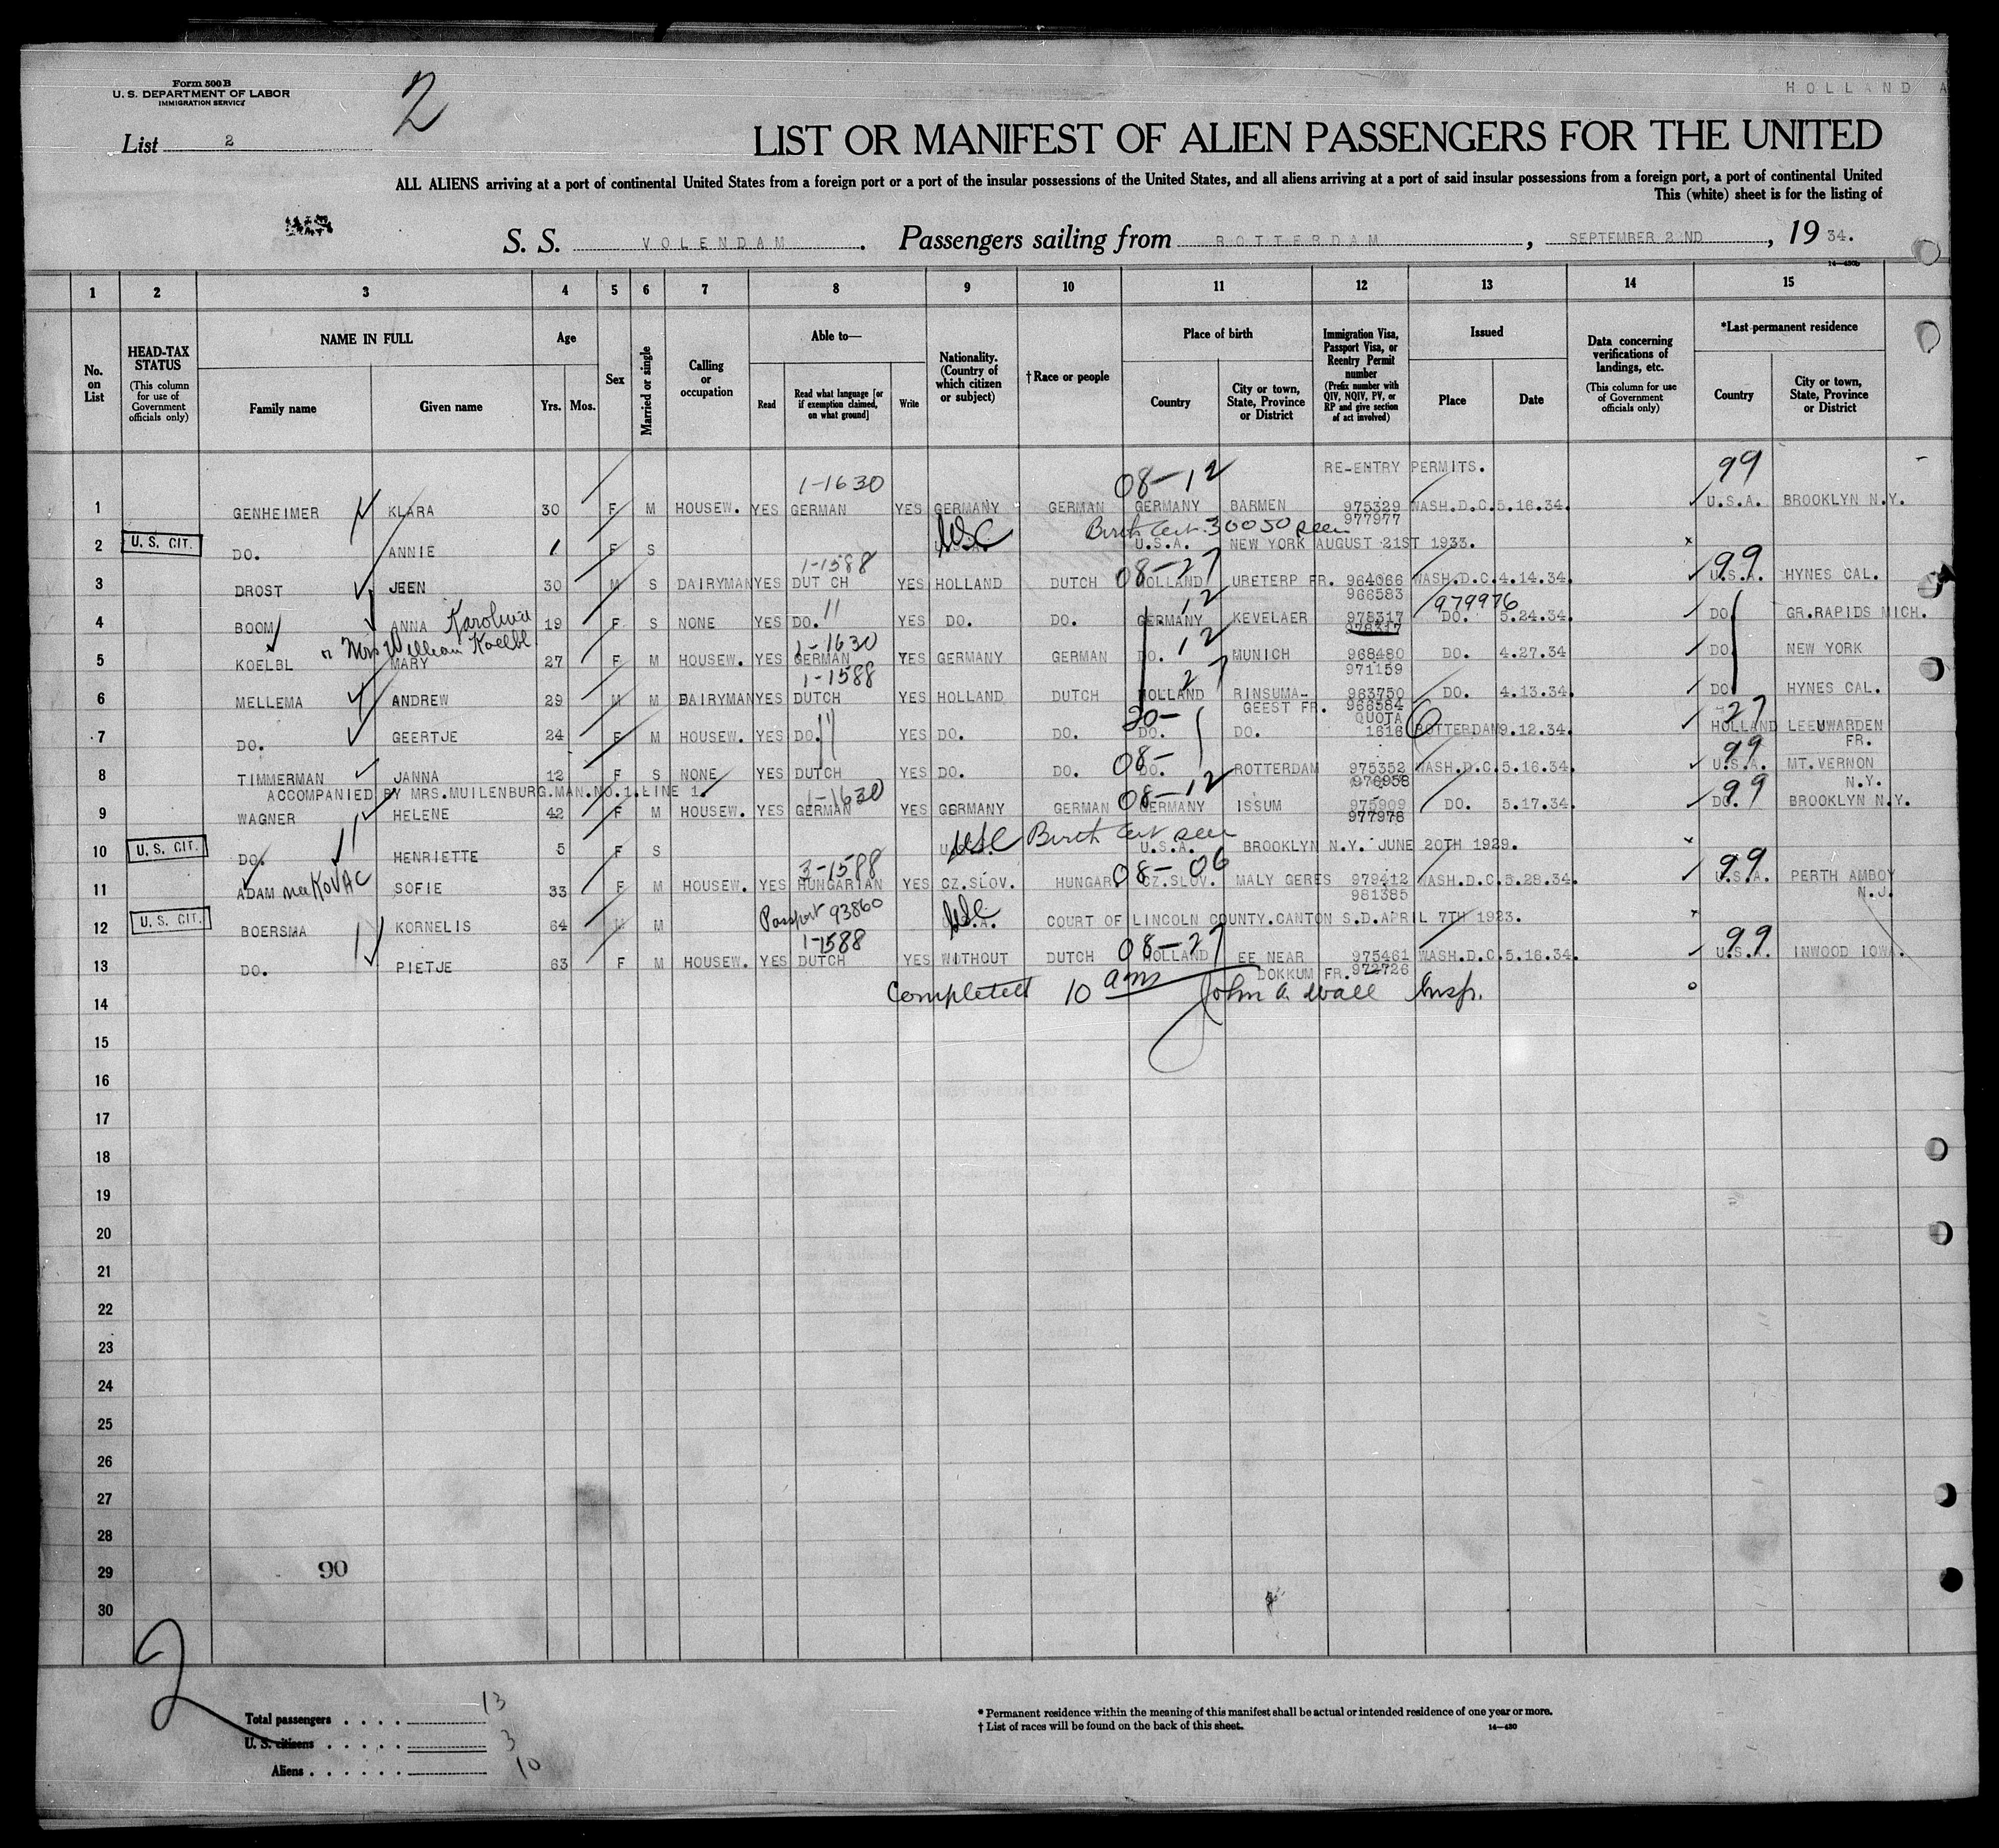 HOLLAND A
Form 500 B
U. S. DEPARTMENT OF LABOR
IMMIGRATION SERVICE
2
List 2
LIST OR MANIFEST OF ALIEN PASSENGERS FOR THE UNITED
ALL ALIENS arriving at a port of continental United States from a foreign port or a port of the insular possessions of the United States, and all aliens arriving at a port of said insular possessions from a foreign port, a port of continental United
This (white) sheet is for the listing of
S. S. VOLENDAM . Passengers sailing from ROTTERDAM , SEPTEMBER 22ND , 19 34.
14—430b
1 2 3 4 5 6 7 8 9 10 11 12 13 14 15
No. on List
HEAD-TAX STATUS (This column for use of Government officials only)
NAME IN FULL Family name Given name
Age Yrs. Mos.
Sex
Married or single
Calling or occupation
Able to— Read Read what language [or if exemption claimed, on what ground] Write
Nationality. (Country of which citizen or subject)
† Race or people
Place of birth Country City or town, State, Province or District
Immigration Visa, Passport Visa, or Reentry Permit number (Prefix number with QIV, NQIV, PV, or RP and give section of act involved)
Issued Place Date
Data concerning verifications of landings, etc. (This column for use of Government officials only)
*Last permanent residence Country City or town, State, Province or District
RE-ENTRY PERMITS.
1-1630 08-12 99
1 GENHEIMER KLARA 30 F M HOUSEW. YES GERMAN YES GERMANY GERMAN GERMANY BARMEN 975329 WASH.D.C. 5.16.34. U.S.A. BROOKLYN N.Y.
977977
USC Birth Cert 30050 seen
2 U. S. CIT. DO. ANNIE 1 F S U.S.A. U.S.A. NEW YORK AUGUST 21ST 1933.
1-1588 08-27 99
3 DROST JEEN 30 M S DAIRYMAN YES DUTCH YES HOLLAND DUTCH HOLLAND URETERP FR. 964066 WASH.D.C. 4.14.34. U.S.A. HYNES CAL.
966583
979976
4 BOOM ANNA Karolina 19 F S NONE YES DO. 11 YES DO. DO. GERMANY 12 KEVELAER 978317 DO. 5.24.34. DO GR.RAPIDS MICH.
978317
Mrs William Koelbl 1-1630 12
5 KOELBL MARY 27 F M HOUSEW. YES GERMAN YES GERMANY GERMAN DO. MUNICH 968480 DO. 4.27.34 DO NEW YORK
971159
1-1588 27
6 MELLEMA ANDREW 29 M M DAIRYMAN YES DUTCH YES HOLLAND DUTCH HOLLAND RINSUMA- 963750 DO. 4.13.34. DO HYNES CAL.
GEEST FR. 966584
QUOTA
20- 27
7 DO. GEERTJE 24 F M HOUSEW. YES DO. 11 YES DO. DO. DO. DO. 1616 ROTTERDAM 9.12.34. HOLLAND LEEUWARDEN
FR.
08- 99
8 TIMMERMAN JANNA 12 F S NONE YES DUTCH YES DO. DO. DO. ROTTERDAM 975352 WASH.D.C. 5.16.34. U.S.A. MT.VERNON
976958 N.Y.
ACCOMPANIED BY MRS.MUILENBURG.MAN.NO.1.LINE 1.
1-1630 08-12 99
9 WAGNER HELENE 42 F M HOUSEW. YES GERMAN YES GERMANY GERMAN GERMANY ISSUM 975909 DO. 5.17.34. DO. BROOKLYN N.Y.
977978
USC Birth Cert seen
10 U. S. CIT. DO. HENRIETTE 5 F S U.S.A. U.S.A. BROOKLYN N.Y. JUNE 20TH 1929.
3-1588 08-06 99
11 ADAM nee KOVAC SOFIE 33 F M HOUSEW. YES HUNGARIAN YES CZ.SLOV. HUNGAR. CZ.SLOV. MALY GERES 979412 WASH.D.C. 5.28.34. U.S.A. PERTH AMBOY
981385 N.J.
Passport 93860 USC
12 U. S. CIT. BOERSMA KORNELIS 64 M M U.S.A. COURT OF LINCOLN COUNTY.CANTON S.D.APRIL 7TH 1923.
1-1588 08-27 99
13 DO. PIETJE 63 F M HOUSEW. YES DUTCH YES WITHOUT DUTCH HOLLAND EE NEAR 975461 WASH.D.C. 5.16.34. U.S.A. INWOOD IOWA.
DOKKUM FR. 972726
Completed 10 ams John A. Wall Insp.
14
15
16
17
18
19
20
21
22
23
24
25
26
27
28
29 90
30
2
Total passengers . . . . 13
U. S. citizens . . . . . 3
Aliens . . . . . . 10
* Permanent residence within the meaning of this manifest shall be actual or intended residence of one year or more.
† List of races will be found on the back of this sheet. 14—430